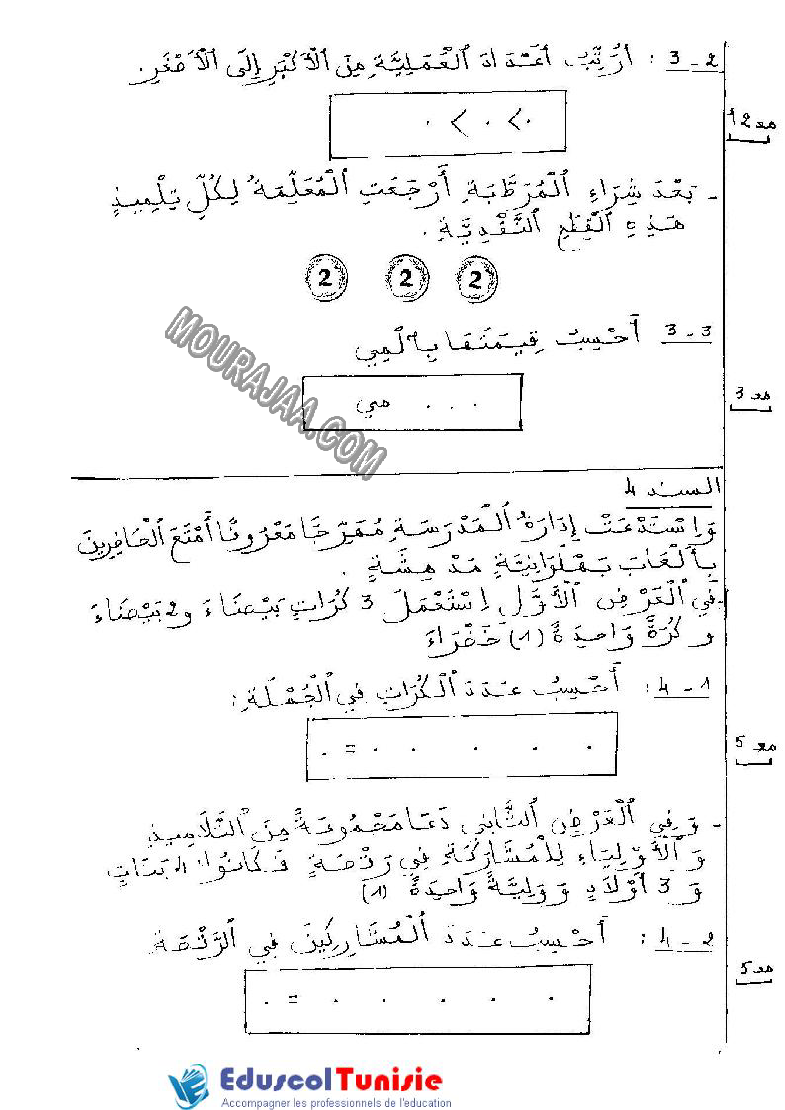 3-2 : أُرَتِّبُ أَعْدَادَ الْعَمَلِيَّةِ مِنَ الْأَكْبَرِ إِلَى الْأَصْغَرِ.
مع 12
. > . > .
- بَعْدَ شِرَاءِ الْمُرَطَّبَةِ أَرْجَعَتِ الْمُعَلِّمَةُ لِكُلِّ تِلْمِيذٍ
هَذِهِ الْقِطَعِ النَّقْدِيَّةِ.
2 2 2
3-3 أَحْسِبُ قِيمَتَهَا بِالْمِي
مع 3
. . . مي
MOURAJAA.COM
السند 4
وَاِسْتَدْعَتْ إِدَارَةُ الْمَدْرَسَةِ مُهَرِّجًا مَعْرُوفًا أَمْتَعَ الْحَاضِرِينَ
بِأَلْعَابَ بَهْلَوَانِيَّةٍ مُدْهِشَةٍ.
- فِي الْعَرْضِ الْأَوَّلِ اِسْتَعْمَلَ 3 كُرَاتٍ بَيْضَاءَ و 2 بَيْضَاءَ
و كُرَةً وَاحِدَةً (1) خَضْرَاءَ
4-1 : أَحْسِبُ عَدَدَ الْكُرَاتِ فِي الْجُمْلَةِ:
مع 5
. = . . . . .
- وَ فِي الْعَرْضِ الثَّانِي دَعَا مَجْمُوعَةً مِنَ التَّلَامِيذِ
وَ الْأَوْلِيَاءِ لِلْمُشَارَكَةِ فِي رَقْصَةٍ فَكَانُوا: 4 بَنَاتٍ
وَ 3 أَوْلَادٍ وَ وَلِيَّةً وَاحِدَةً (1)
4-2 : أَحْسِبُ عَدَدَ الْمُشَارِكِينَ فِي الرَّقْصَةِ
مع 5
. = . . . . .
EduscolTunisie
Accompagner les professionnels de l'education